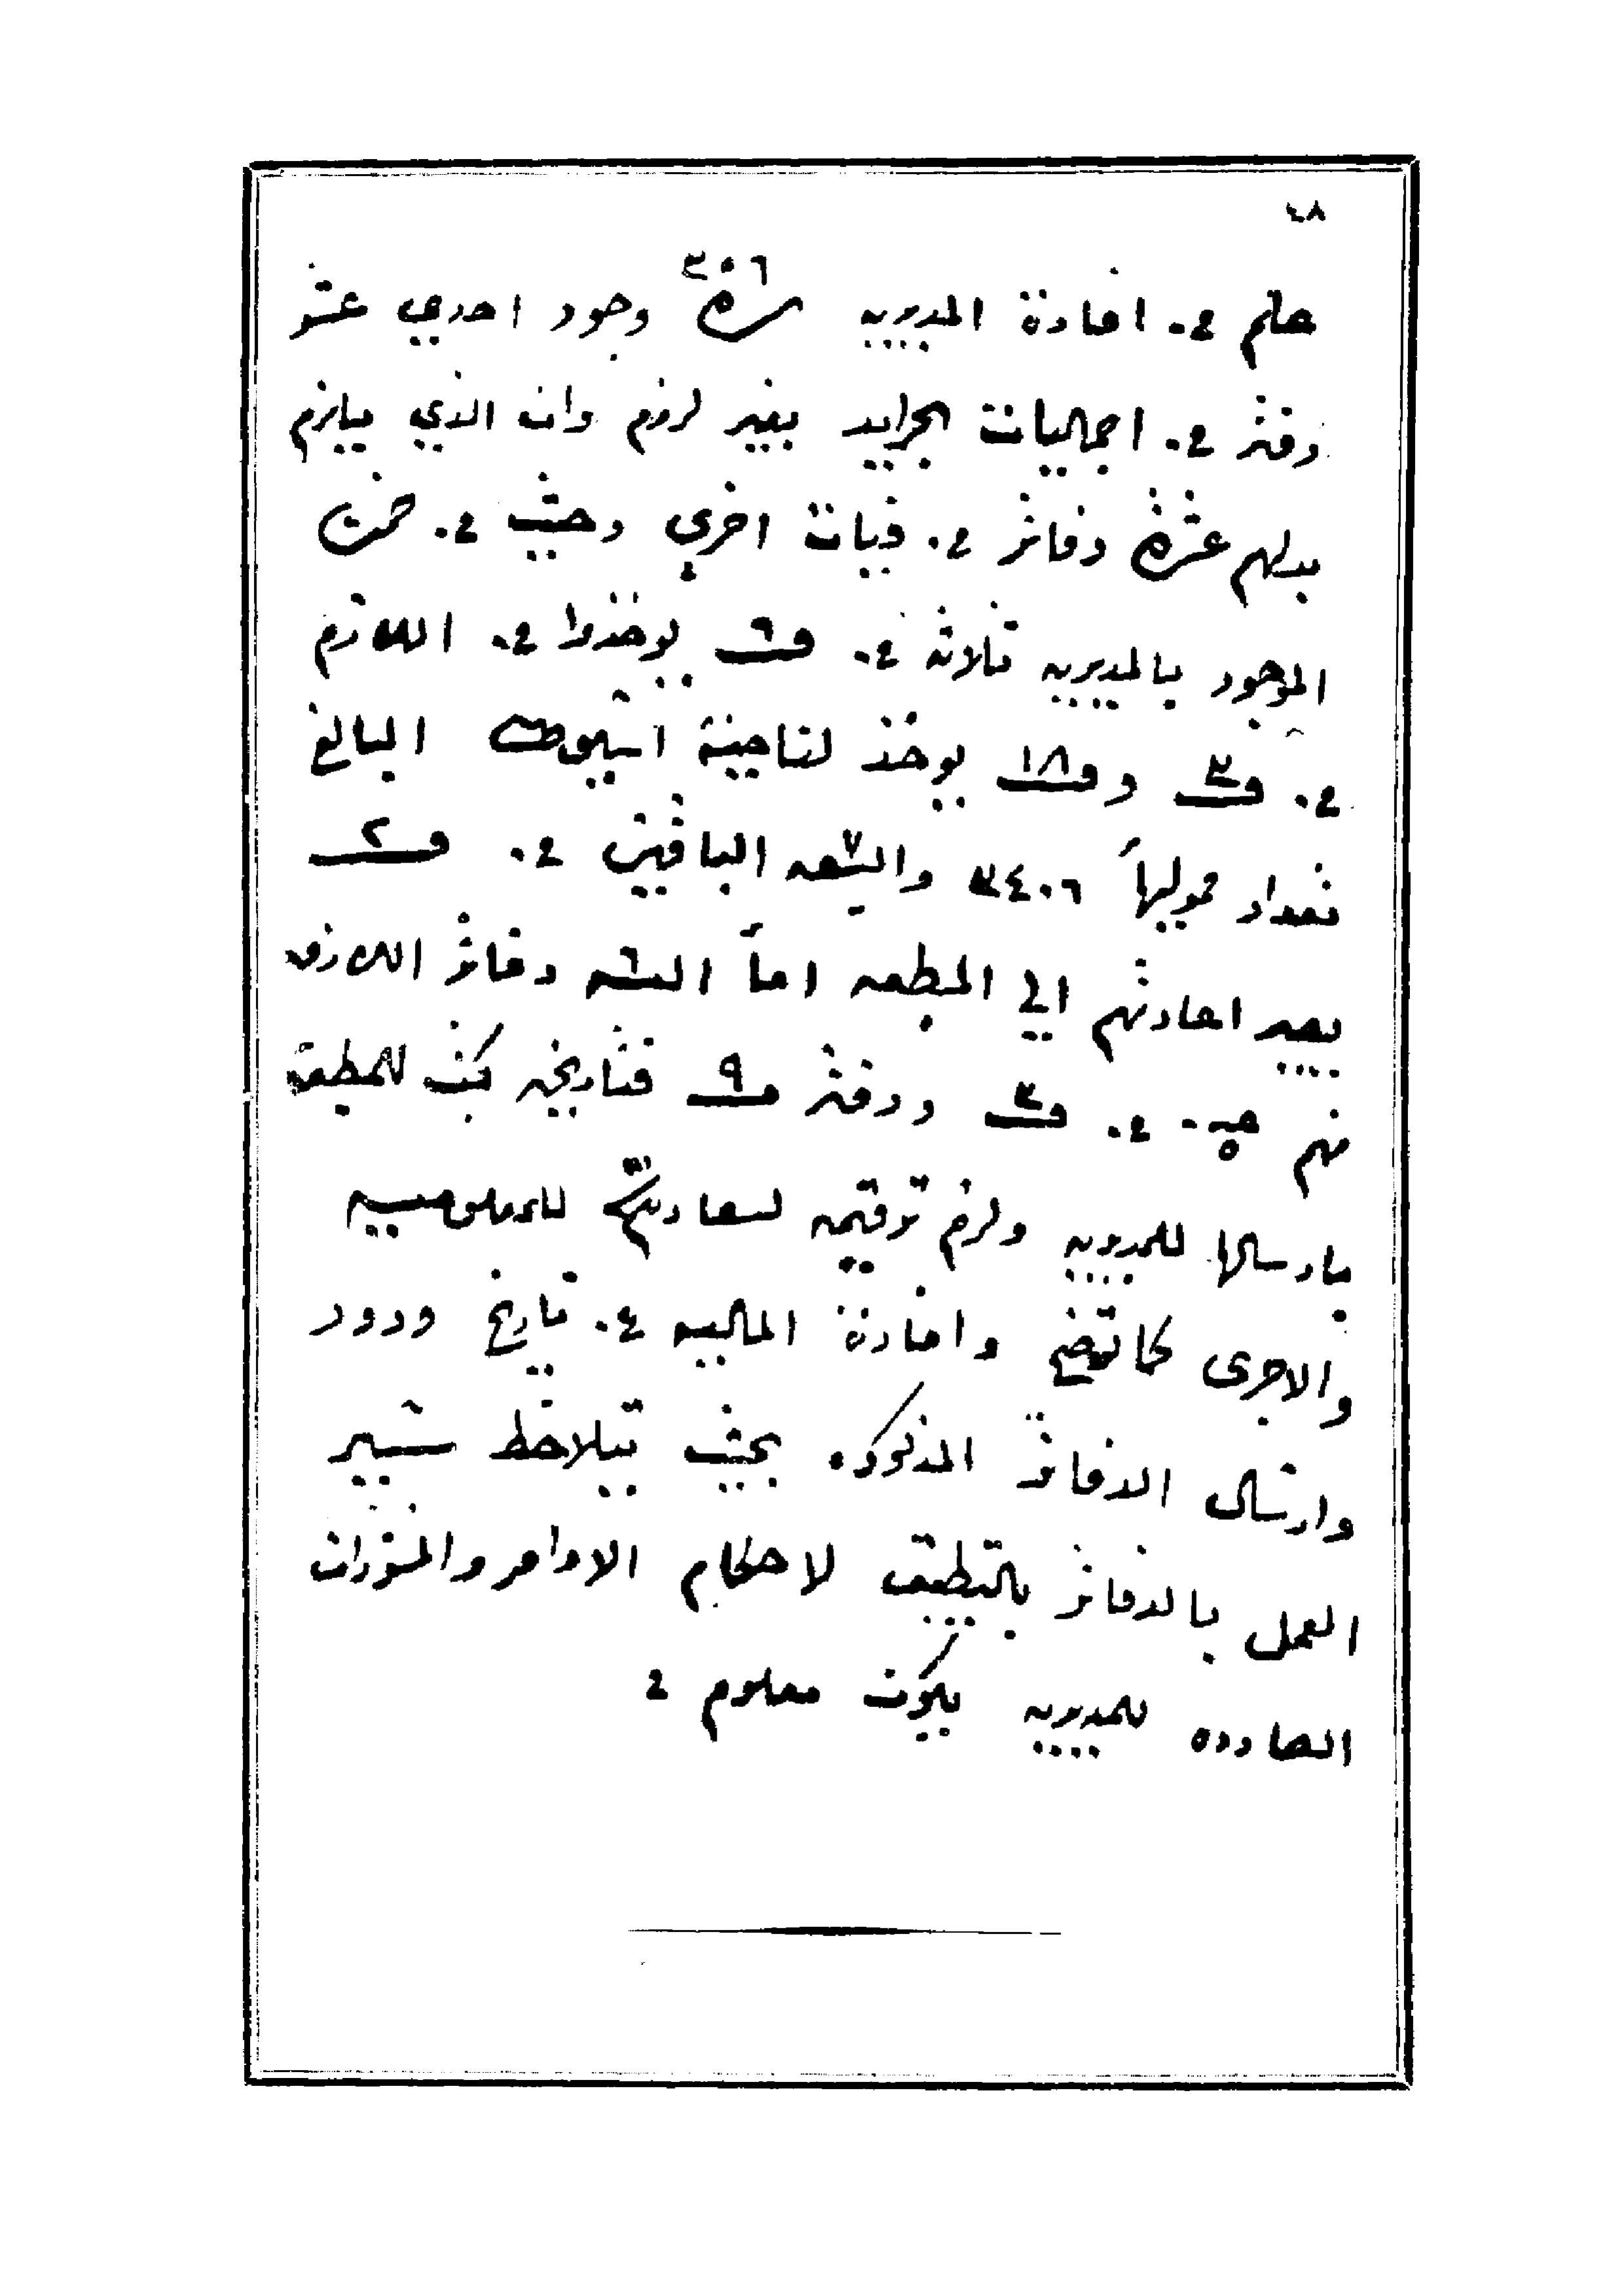 ٤٨
علم من افادة المديريه نمرة ٣٠٦ وجود احدي عشر
دفتر من اجماليات الجرايد بغير لزوم وان الذي يلزم
بدلهم عشرة دفاتر من فيات اخري وحيث من ضمن
الموجود بالمديريه ثلاثه من ٦ يوخذوا من اللازم
من ٣ و ١٨ يوخذ لناحية اسيوط البالغ
تعداد مموليها ٣٤٠٦ والسبعه ٧ الباقيين من ٢
يصير اعادتهم الي المطبعه اما السته ٦ دفاتر اللازم
منهم ٥ من ٣ ودفتر ٩ فتاريخه كتب للمطبعة
بارسالها للمديريه ولزم ترقيمه لسعادتكم للمعلوميه
والاجرى كما توضح وافادة الماليه من تاريخ ورود
وارسال الدفاتر المذكوره بحيث تتلاحظ سير
العمل بالدفاتر بالتطبيق لاحكام الاوامر والمنشورات
الصادره للمديريه يكون معلوم